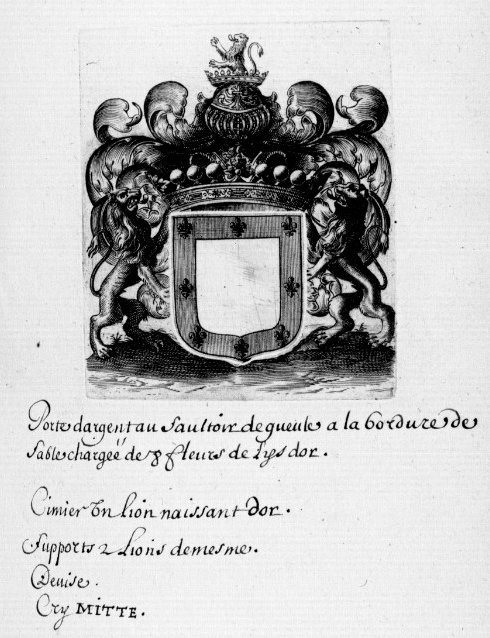 Porte dargent au Saultoir de gueule a la bordure de
Sable chargeé de 8 fleurs de Lys dor.
Cimier Un lion naissant dor.
Supports 2 Lions demesme.
Deuise.
Cry MITTE.